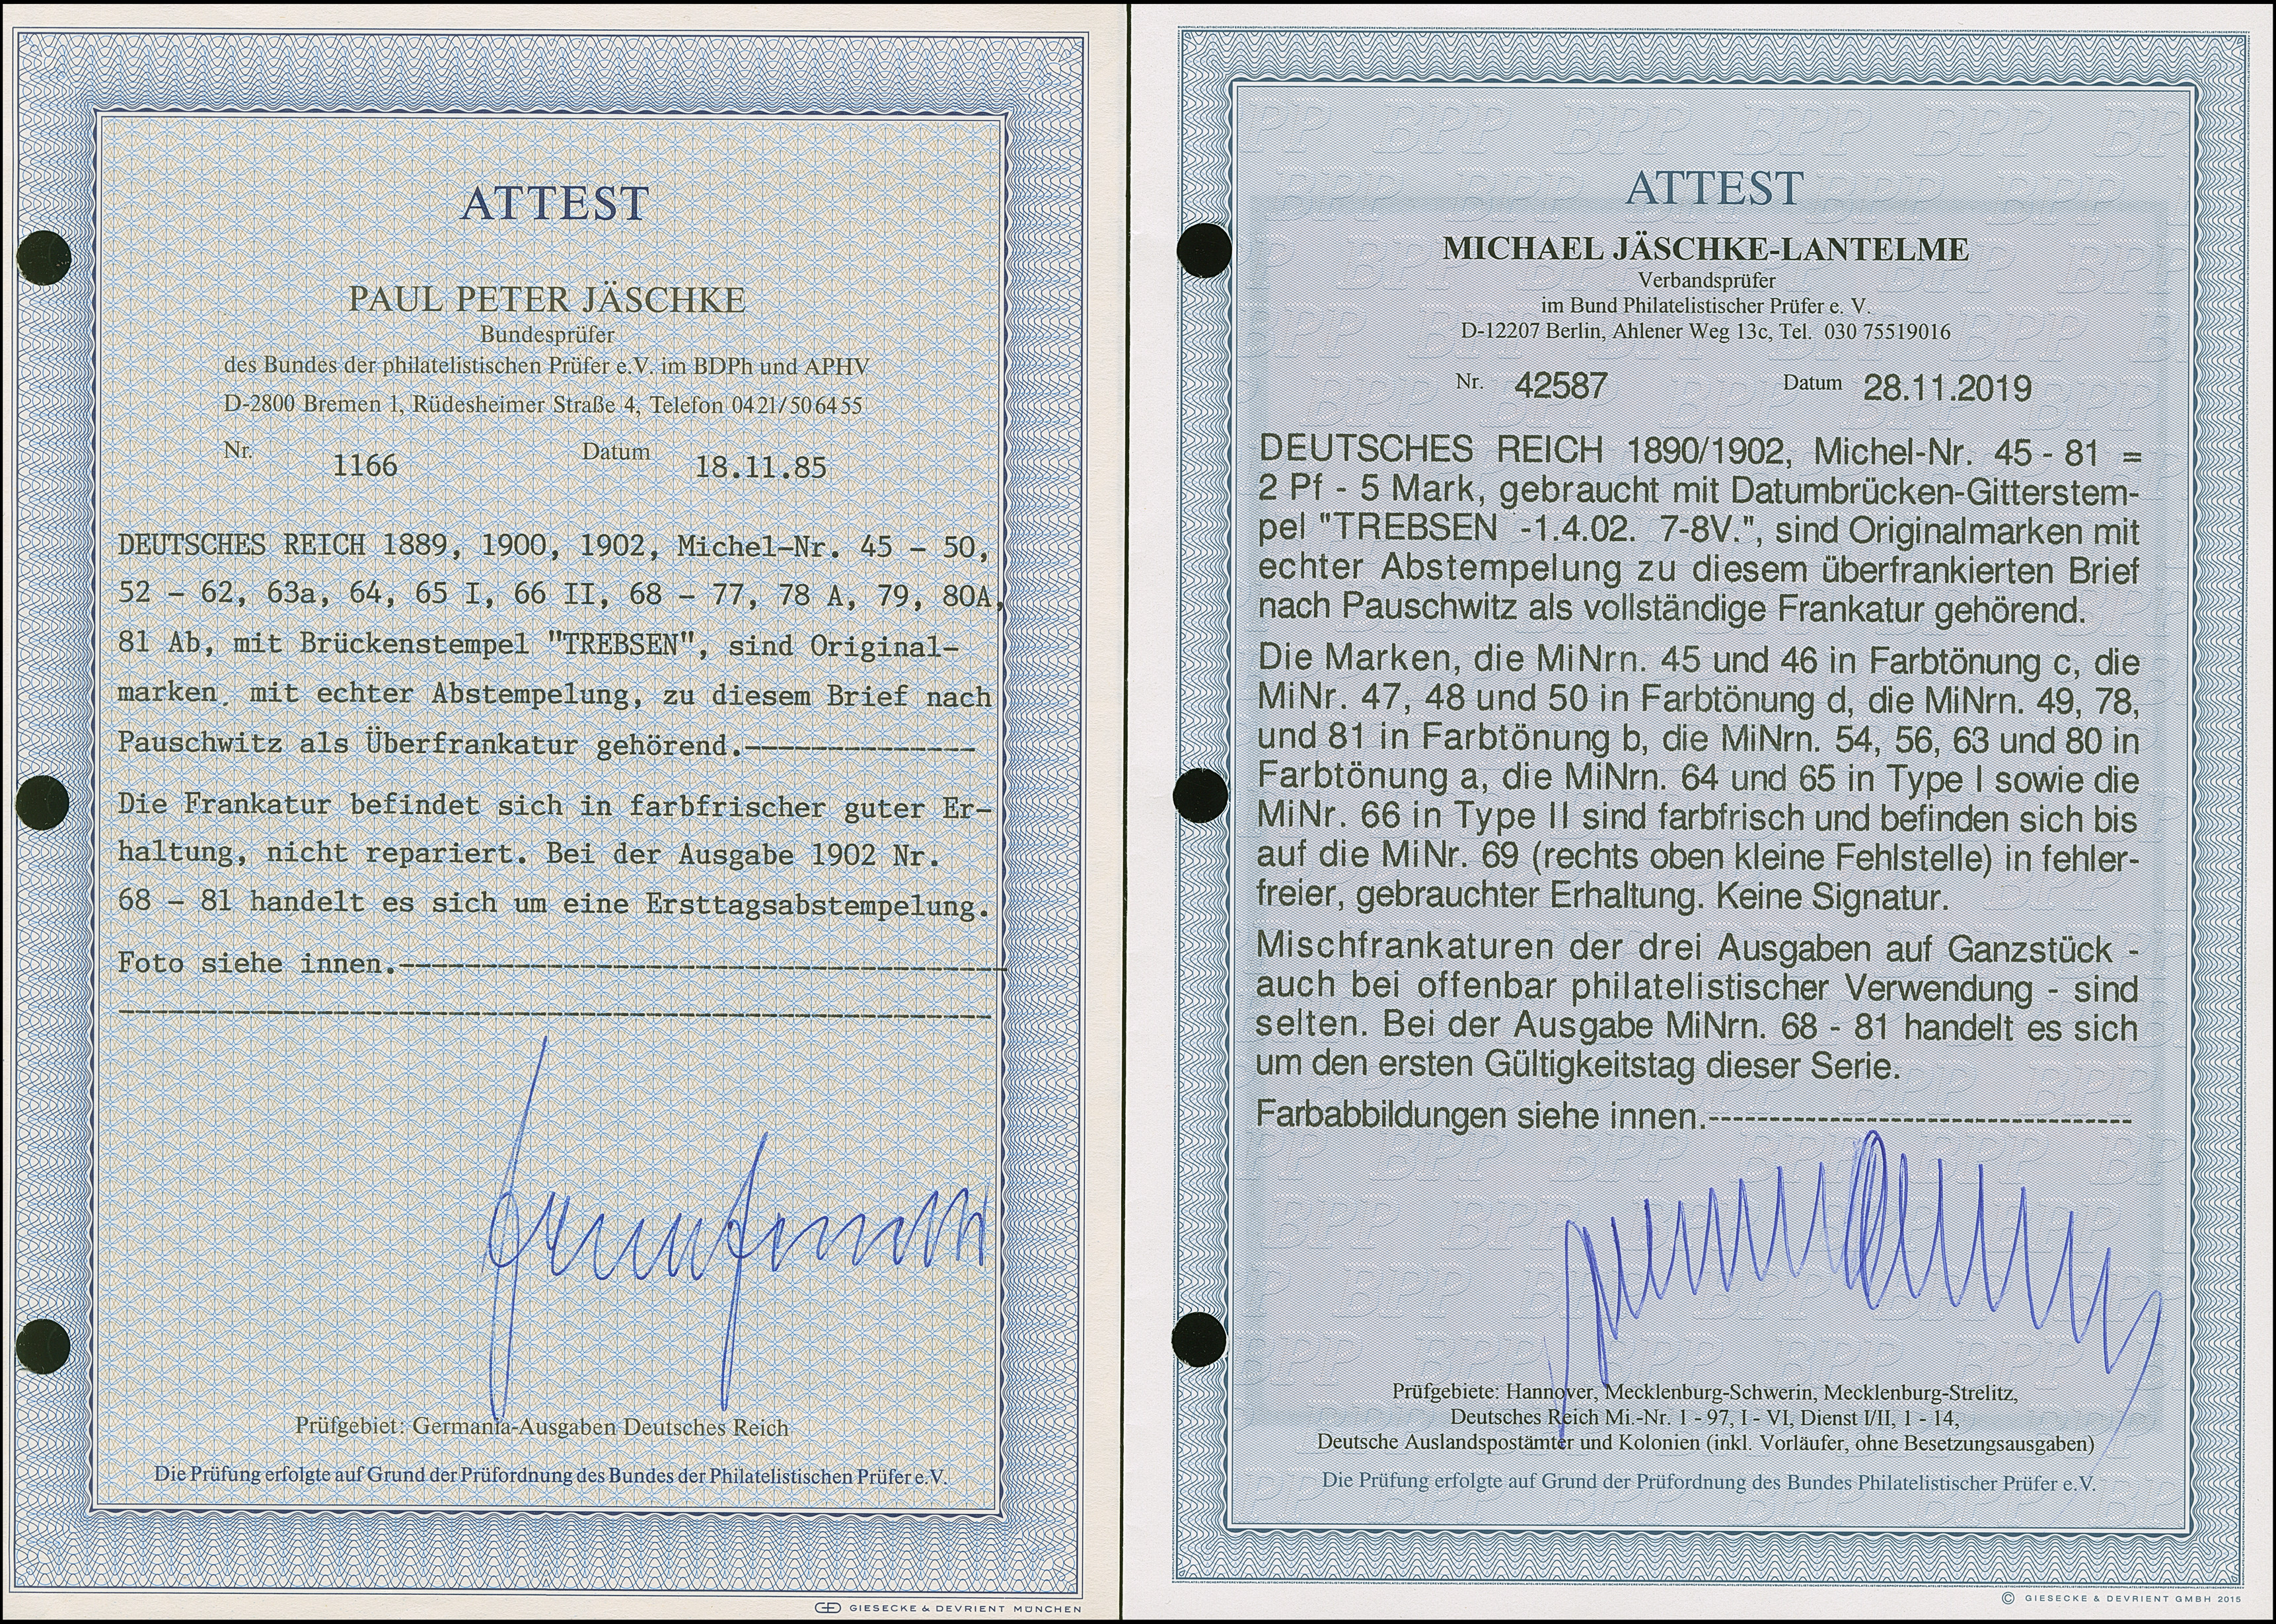 ATTEST
PAUL PETER JÄSCHKE
Bundesprüfer
des Bundes der philatelistischen Prüfer e.V. im BDPh und APHV
D-2800 Bremen 1, Rüdesheimer Straße 4, Telefon 0421/506455
Nr. 1166 Datum 18.11.85
DEUTSCHES REICH 1889, 1900, 1902, Michel-Nr. 45 - 50,
52 - 62, 63a, 64, 65 I, 66 II, 68 - 77, 78 A, 79, 80A,
81 Ab, mit Brückenstempel "TREBSEN", sind Original-
marken mit echter Abstempelung, zu diesem Brief nach
Pauschwitz als Überfrankatur gehörend.--------------
Die Frankatur befindet sich in farbfrischer guter Er-
haltung, nicht repariert. Bei der Ausgabe 1902 Nr.
68 - 81 handelt es sich um eine Ersttagsabstempelung.
Foto siehe innen.-------------------------------------
Prüfgebiet: Germania-Ausgaben Deutsches Reich
Die Prüfung erfolgte auf Grund der Prüfordnung des Bundes der Philatelistischen Prüfer e.V.
GIESECKE & DEVRIENT MÜNCHEN
ATTEST
MICHAEL JÄSCHKE-LANTELME
Verbandsprüfer
im Bund Philatelistischer Prüfer e. V.
D-12207 Berlin, Ahlener Weg 13c, Tel. 030 75519016
Nr. 42587 Datum 28.11.2019
DEUTSCHES REICH 1890/1902, Michel-Nr. 45 - 81 =
2 Pf - 5 Mark, gebraucht mit Datumbrücken-Gitterstem-
pel "TREBSEN -1.4.02. 7-8V.", sind Originalmarken mit
echter Abstempelung zu diesem überfrankierten Brief
nach Pauschwitz als vollständige Frankatur gehörend.
Die Marken, die MiNrn. 45 und 46 in Farbtönung c, die
MiNr. 47, 48 und 50 in Farbtönung d, die MiNrn. 49, 78,
und 81 in Farbtönung b, die MiNrn. 54, 56, 63 und 80 in
Farbtönung a, die MiNrn. 64 und 65 in Type I sowie die
MiNr. 66 in Type II sind farbfrisch und befinden sich bis
auf die MiNr. 69 (rechts oben kleine Fehlstelle) in fehler-
freier, gebrauchter Erhaltung. Keine Signatur.
Mischfrankaturen der drei Ausgaben auf Ganzstück -
auch bei offenbar philatelistischer Verwendung - sind
selten. Bei der Ausgabe MiNrn. 68 - 81 handelt es sich
um den ersten Gültigkeitstag dieser Serie.
Farbabbildungen siehe innen.------------------------------
Prüfgebiete: Hannover, Mecklenburg-Schwerin, Mecklenburg-Strelitz,
Deutsches Reich Mi.-Nr. 1 - 97, I - VI, Dienst I/II, 1 - 14,
Deutsche Auslandspostämter und Kolonien (inkl. Vorläufer, ohne Besetzungsausgaben)
Die Prüfung erfolgte auf Grund der Prüfordnung des Bundes Philatelistischer Prüfer e.V.
© GIESECKE & DEVRIENT GMBH 2015